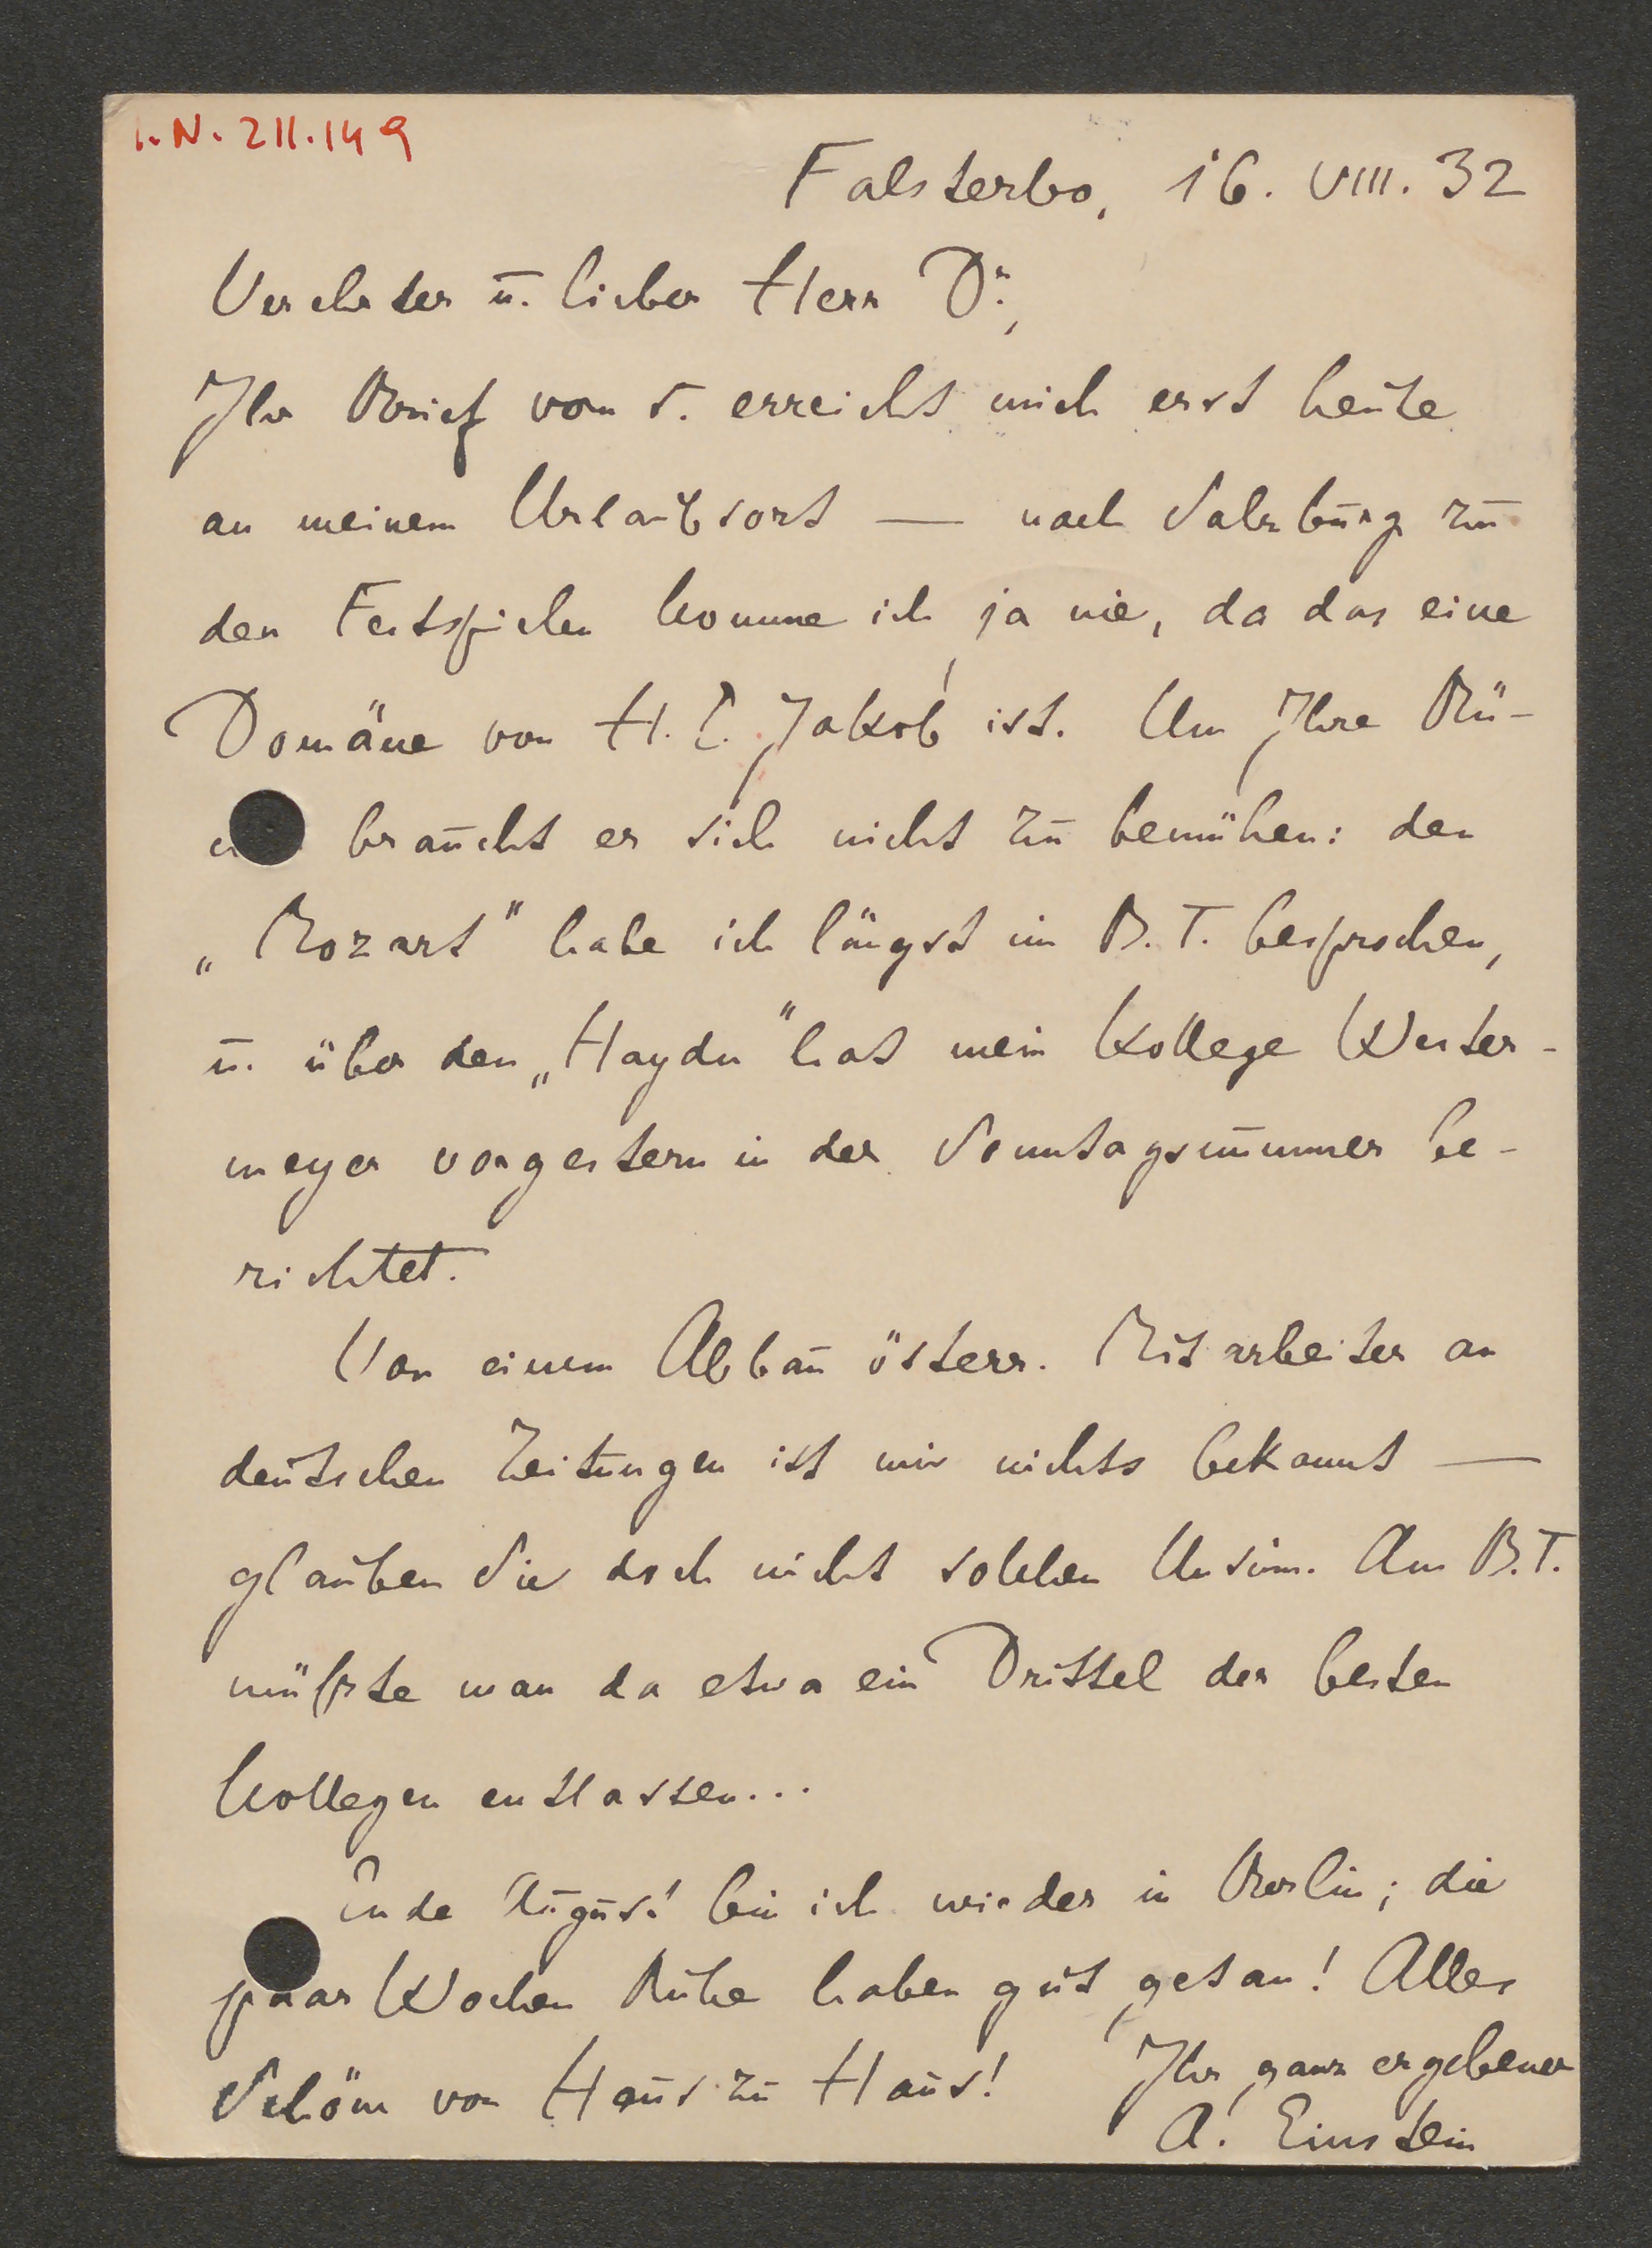 I. N. 211.149
Falsterbo, 16. VIII. 32
Verehrter u. lieber Herr Dr.,
Ihr Brief vom 5. erreicht mich erst heute
an meinem Urlaubsort — nach Salzburg zu
den Festspielen komme ich ja nie, da das eine
Domäne von H. E. Jakob ist. Um Ihre Bü-
braucht er sich nicht zu bemühen: den
„Mozart" habe ich längst im B. T. besprochen,
u. über den „Haydn" hat mein Kollege Wester-
meyer vorgestern in der Sonntagsnummer be-
richtet.
Von einem Abbau österr. Mitarbeiter an
deutschen Zeitungen ist mir nichts bekannt —
glauben Sie doch nicht solchen Unsinn. Am B.T.
müßte man da etwa ein Drittel der besten
Kollegen entlassen...
Ende August bin ich wieder in Berlin; die
paar Wochen Ruhe haben gut getan! Alles
Schöne von Haus zu Haus! Ihr ganz ergebener
A. Einstein